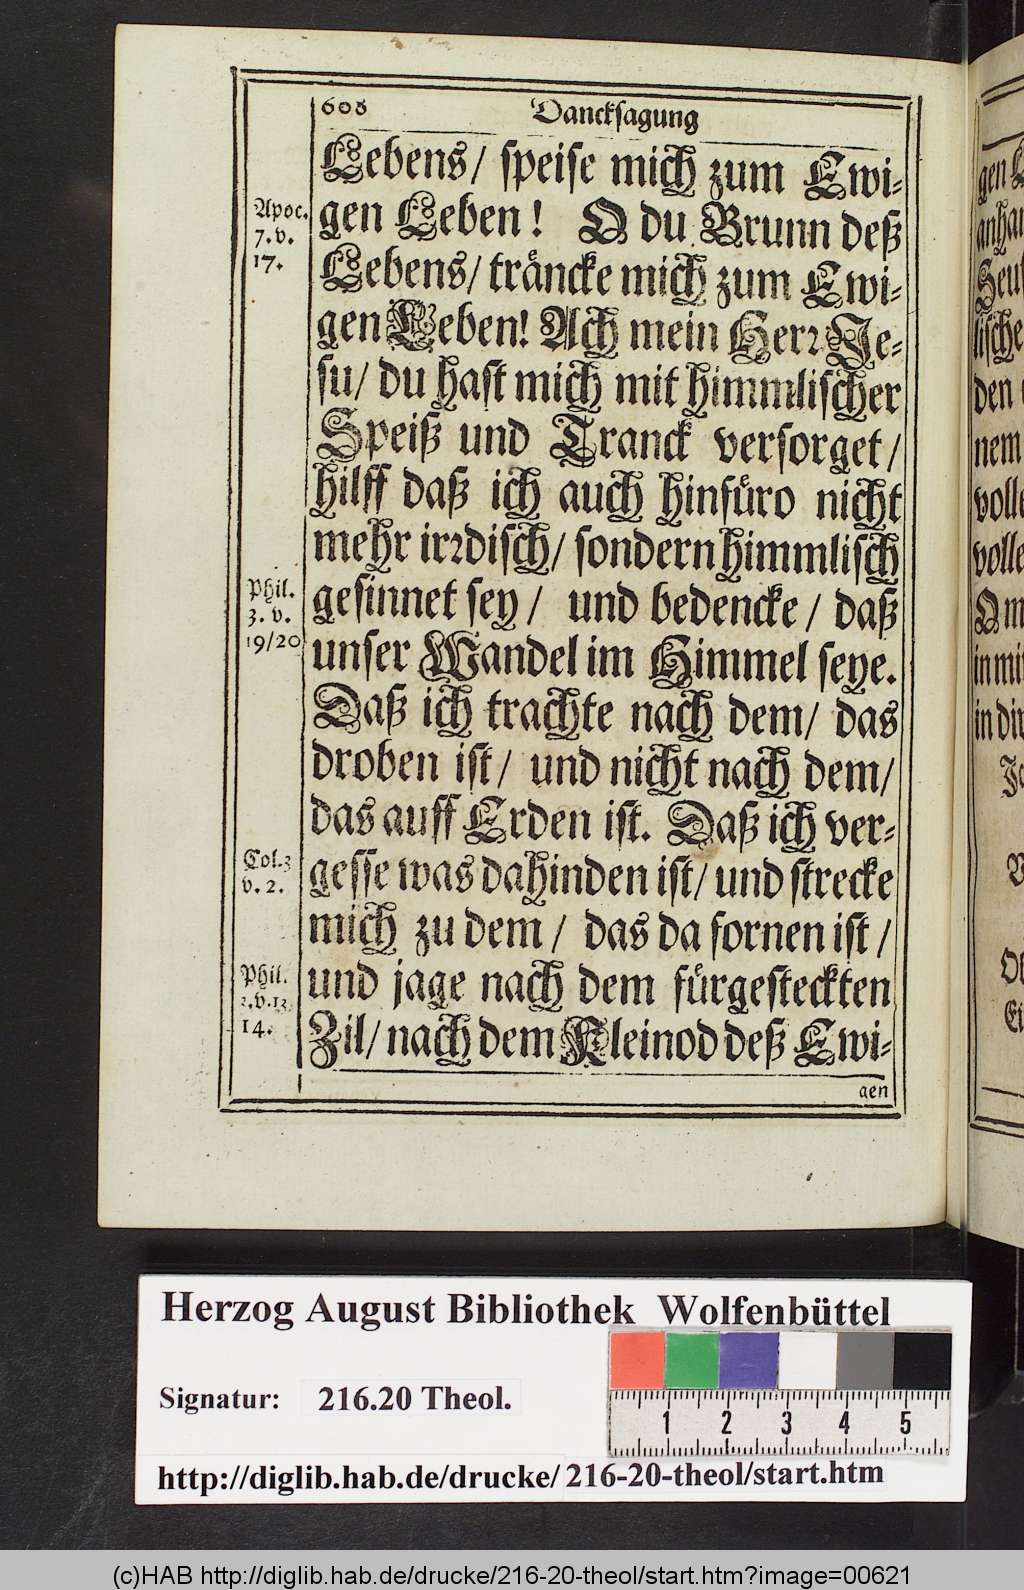 608 Dancksagung
Lebens/ speise mich zum Ewi-
gen Leben! O du Brunn deß
Lebens/ träncke mich zum Ewi-
gen Leben! Ach mein Herꝛ Je-
su/ du hast mich mit himmlischer
Speiß und Tranck versorget/
hilff daß ich auch hinfüro nicht
mehr irꝛdisch/ sondern himmlisch
gesinnet sey/ und bedencke/ daß
unser Wandel im Himmel seye.
Daß ich trachte nach dem/ das
droben ist/ und nicht nach dem/
das auff Erden ist. Daß ich ver-
gesse was dahinden ist/ und strecke
mich zu dem/ das da fornen ist/
und jage nach dem fürgesteckten
Zil/ nach dem Kleinod deß Ewi-
gen
Apoc.
7. v.
17.
Phil.
3. v.
19/20
Col. 3
v. 2.
Phil.
3. v. 13
14.
gen
anhau
lische
den
nem
volle
volle
O m
in mi
in dir
Je
Ei
Herzog August Bibliothek Wolfenbüttel
Signatur: 216.20 Theol.
1 2 3 4 5
http://diglib.hab.de/drucke/216-20-theol/start.htm
(c)HAB http://diglib.hab.de/drucke/216-20-theol/start.htm?image=00621